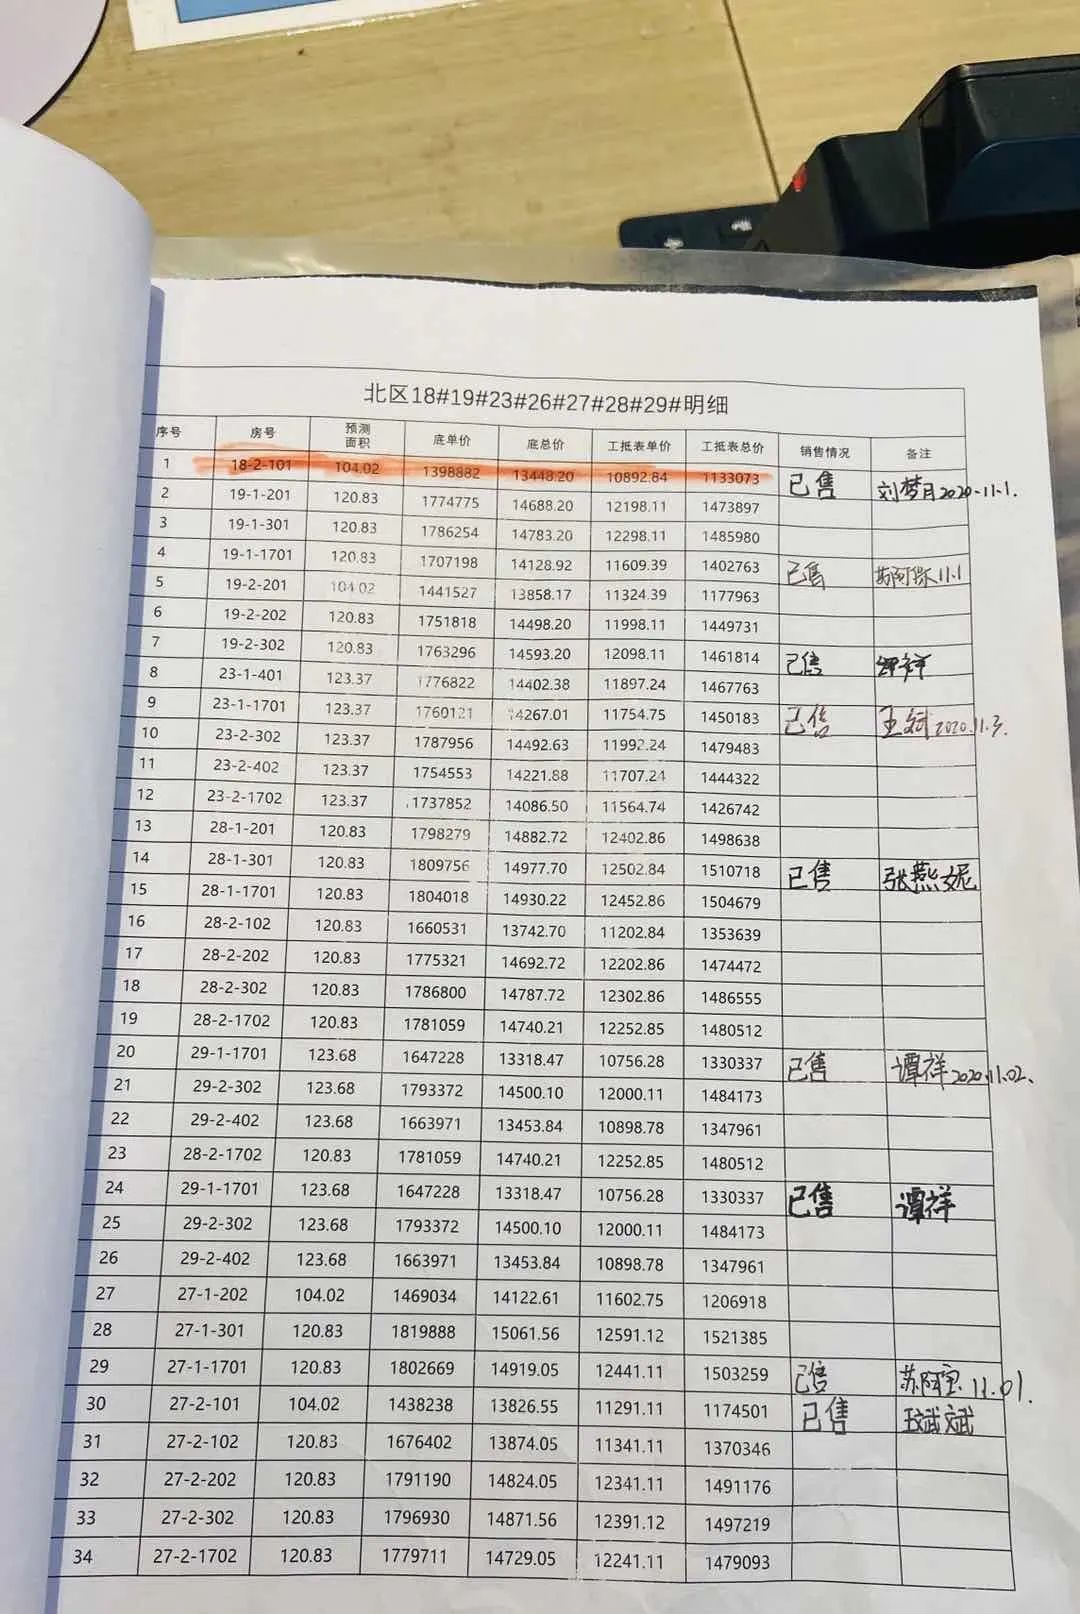 北区18#19#23#26#27#28#29#明细
序号 房号 预测面积 底单价 底总价 工抵表单价 工抵表总价 销售情况 备注
1 18-2-101 104.02 1398882 13448.20 10892.84 1133073 已售 刘梦月2020.11.1.
2 19-1-201 120.83 1774775 14688.20 12198.11 1473897
3 19-1-301 120.83 1786254 14783.20 12298.11 1485980
4 19-1-1701 120.83 1707198 14128.92 11609.39 1402763 已售 11.1
5 19-2-201 104.02 1441527 13858.17 11324.39 1177963
6 19-2-202 120.83 1751818 14498.20 11998.11 1449731
7 19-2-302 120.83 1763296 14593.20 12098.11 1461814 已售
8 23-1-401 123.37 1776822 14402.38 11897.24 1467763
9 23-1-1701 123.37 1760121 14267.01 11754.75 1450183 已售 王斌2020.11.3.
10 23-2-302 123.37 1787956 14492.63 11992.24 1479483
11 23-2-402 123.37 1754553 14221.88 11707.24 1444322
12 23-2-1702 123.37 1737852 14086.50 11564.74 1426742
13 28-1-201 120.83 1798279 14882.72 12402.86 1498638
14 28-1-301 120.83 1809756 14977.70 12502.84 1510718 已售 张燕妮
15 28-1-1701 120.83 1804018 14930.22 12452.86 1504679
16 28-2-102 120.83 1660531 13742.70 11202.84 1353639
17 28-2-202 120.83 1775321 14692.72 12202.86 1474472
18 28-2-302 120.83 1786800 14787.72 12302.86 1486555
19 28-2-1702 120.83 1781059 14740.21 12252.85 1480512
20 29-1-1701 123.68 1647228 13318.47 10756.28 1330337 已售 谭祥2020.11.02.
21 29-2-302 123.68 1793372 14500.10 12000.11 1484173
22 29-2-402 123.68 1663971 13453.84 10898.78 1347961
23 28-2-1702 120.83 1781059 14740.21 12252.85 1480512
24 29-1-1701 123.68 1647228 13318.47 10756.28 1330337 已售 谭祥
25 29-2-302 123.68 1793372 14500.10 12000.11 1484173
26 29-2-402 123.68 1663971 13453.84 10898.78 1347961
27 27-1-202 104.02 1469034 14122.61 11602.75 1206918
28 27-1-301 120.83 1819888 15061.56 12591.12 1521385
29 27-1-1701 120.83 1802669 14919.05 12441.11 1503259 已售 苏阿宝11.01.
30 27-2-101 104.02 1438238 13826.55 11291.11 1174501 已售
31 27-2-102 120.83 1676402 13874.05 11341.11 1370346
32 27-2-202 120.83 1791190 14824.05 12341.11 1491176
33 27-2-302 120.83 1796930 14871.56 12391.12 1497219
34 27-2-1702 120.83 1779711 14729.05 12241.11 1479093